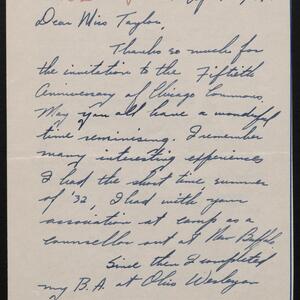 Dear Miss Taylor,
Thanks so much for
the invitation to the Fiftieth
Anniversary of Chicago Commons.
May you all have a wonderful
time reminising. I remember
many interesting experiences
I had the short time, summer
of '32, I had with your
association at camp as a
counsellor out at New Buffalo.
Since then I completed
my B.A. at Ohio Wesleyan